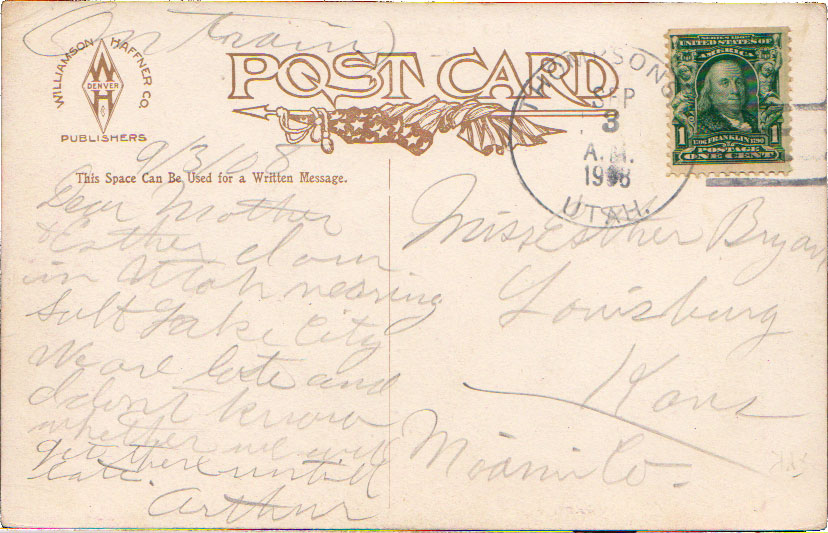 On train
WILLIAMSON HAFFNER CO.
W H
DENVER
Co
PUBLISHERS
POST CARD
THOMPSONS
SEP
3
A.M.
1908
UTAH.
SERIES 1902
UNITED STATES OF
AMERICA
1 1
1706 FRANKLIN 1790
POSTAGE
ONE CENT
9/3/08
This Space Can Be Used for a Written Message.
Dear Mother
& Esther I am
in Utah nearing
Salt Lake City
We are late and
I dont know
whether we will
get there untill
late.
Arthur
Miss Esther Bryan
Louisburg
Kans
Miami Co.